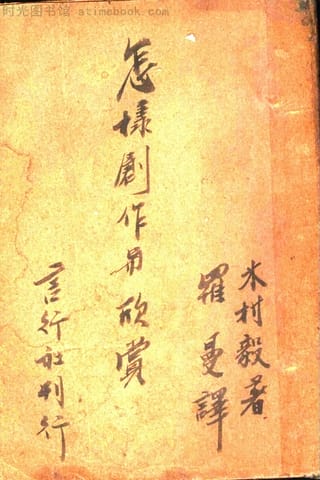 时光图书馆 atimebook.com
木村毅著
羅曼譯
怎樣劇作与欣賞
言行社刊行